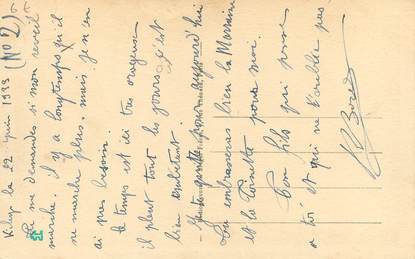 le 22 Juin 1933 (No 2)
Tu me demandes si mon reveil
marche. Il y a longtemps qu'il
ne marche plus, mais je n'en
ai pas besoin.
Le temps est ici très orageux
il pleut tout les jours c'est
bien embêtant.
Je te quitte pour aujourd'hui
Tu embrasseras bien la Marraine
et la Toinette pour moi.
Ton fils qui pense
a toi et qui ne t'oublie pas